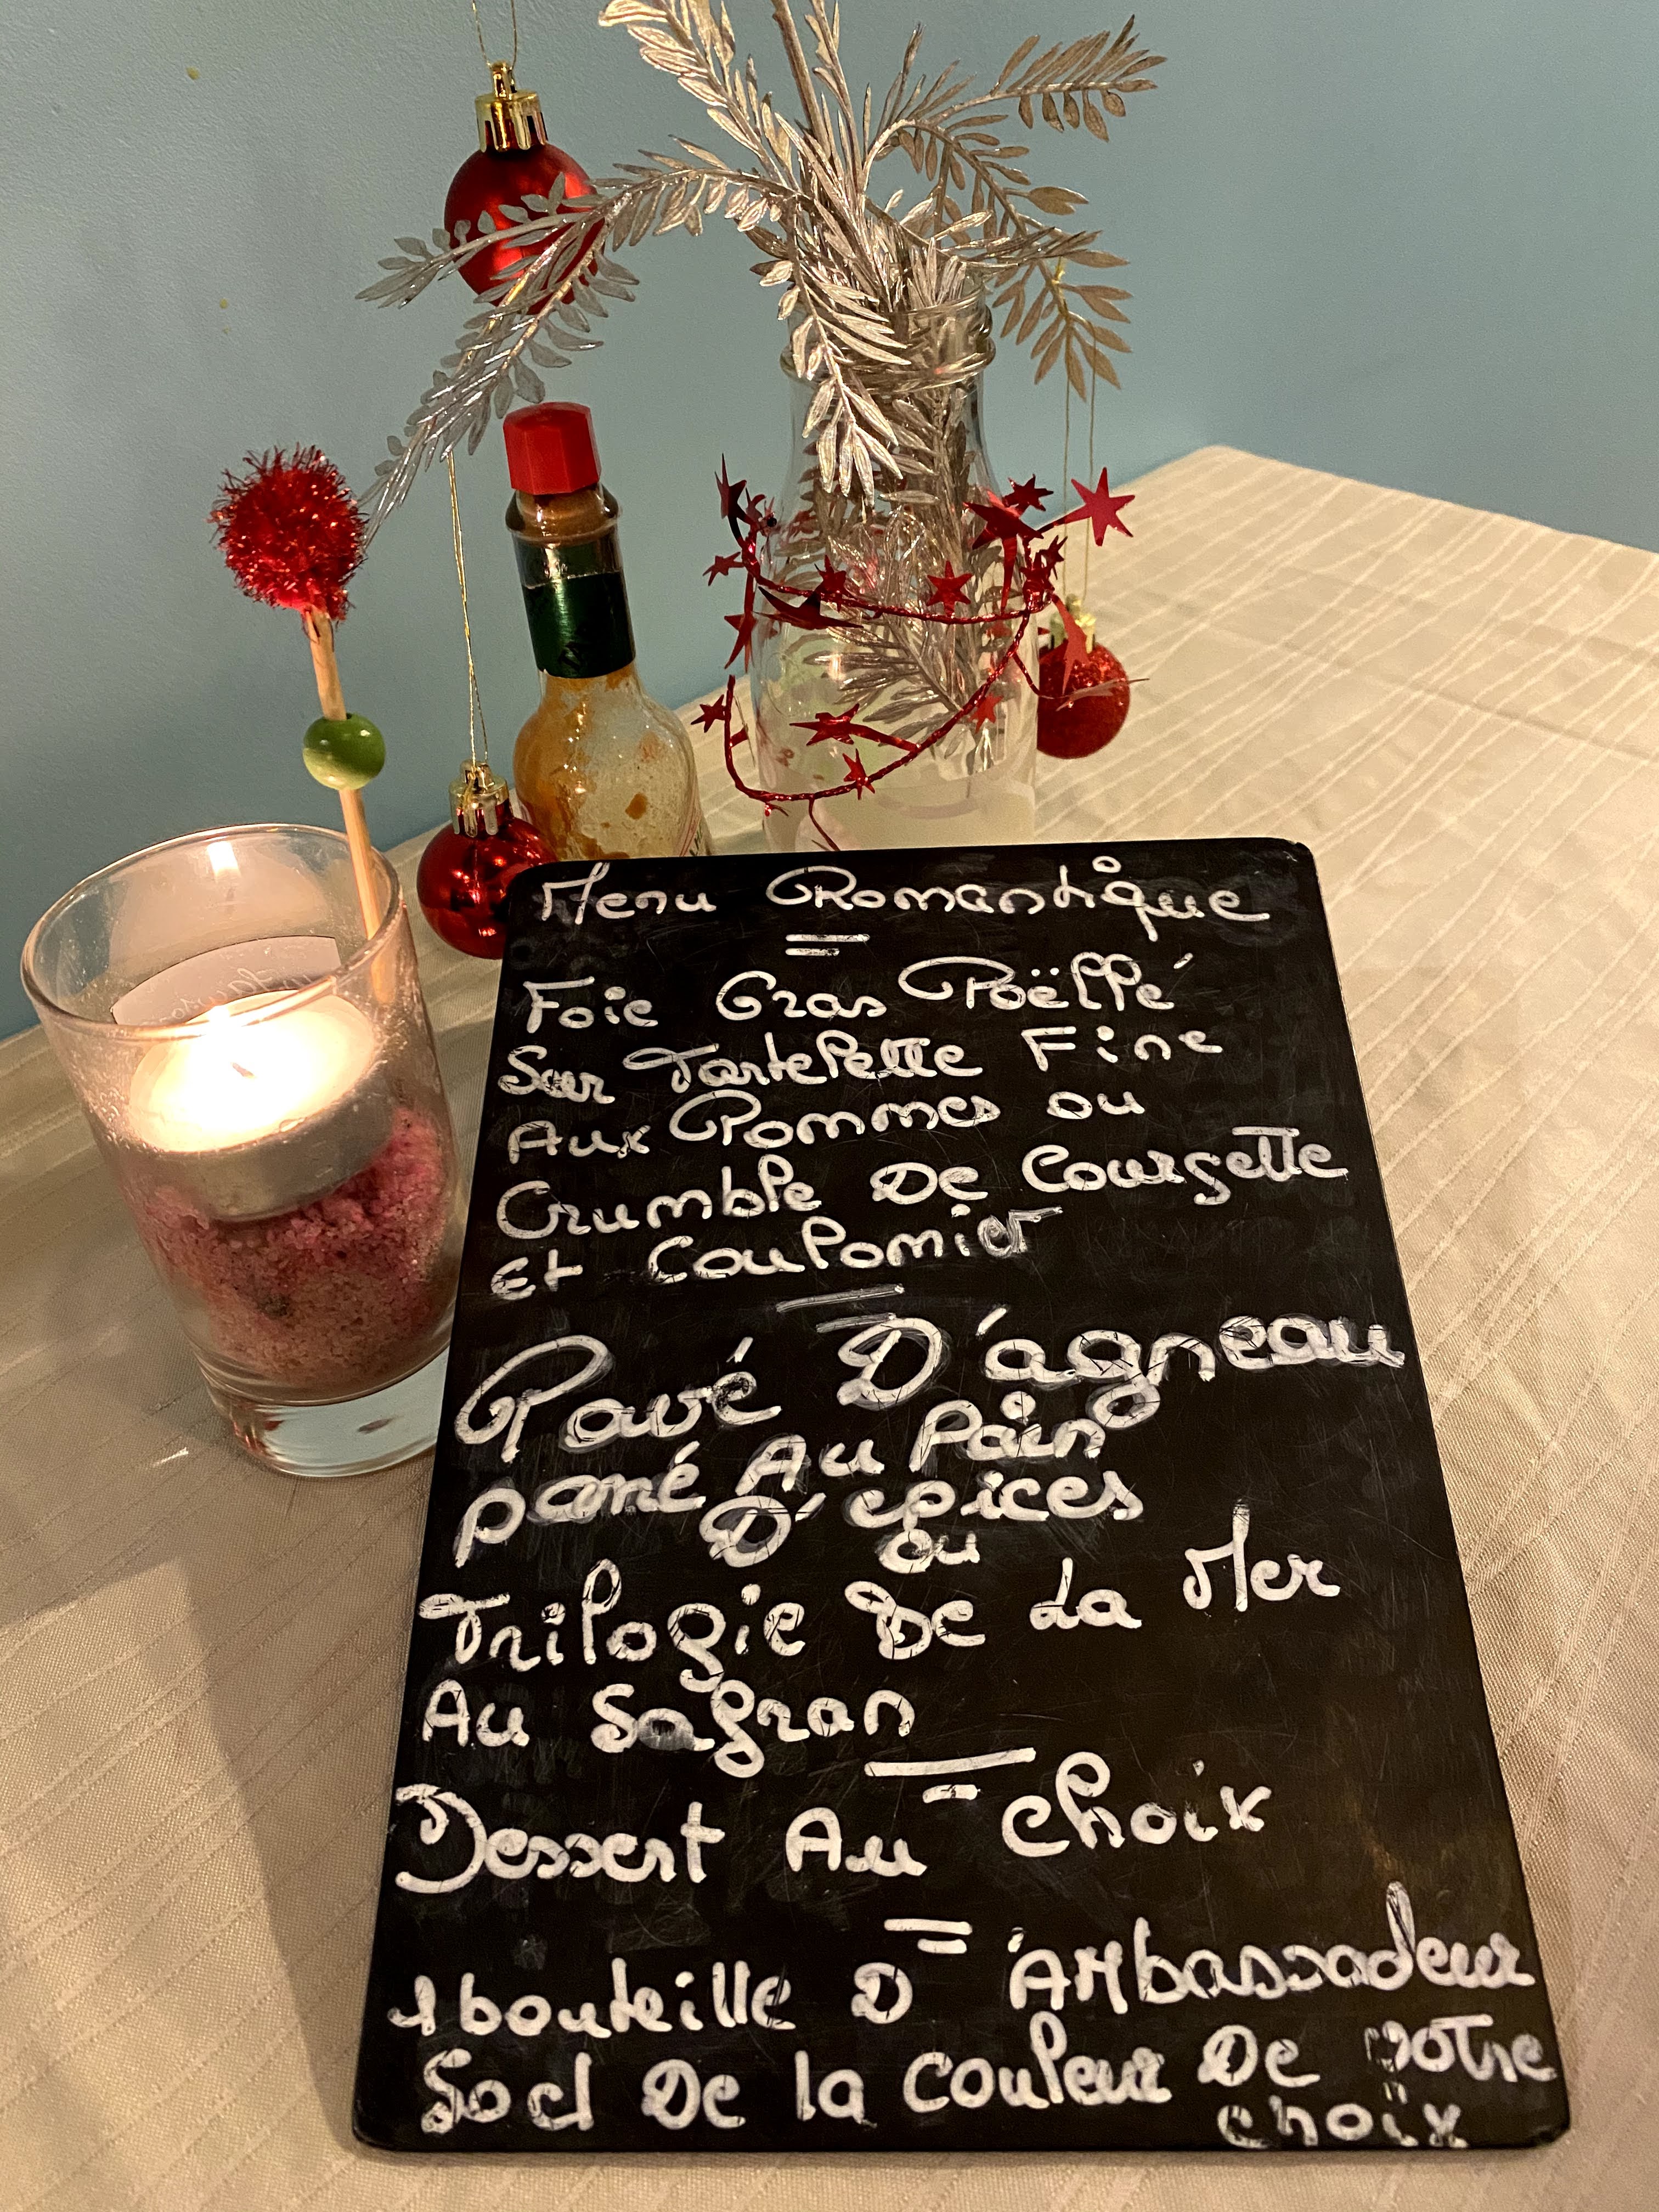 Menu Romantique
Foie Gras Poëllé
Sur Tartelette Fine
Aux Pommes ou
Crumble De Courgette
Et Coulomier
Pavé D'agneau
pané Au Pain
D'epices
ou
Trilogie De La Mer
Au Safran
Dessert Au Choix
1 bouteille D'Ambassadeur
50cl De la couleur De votre
choix